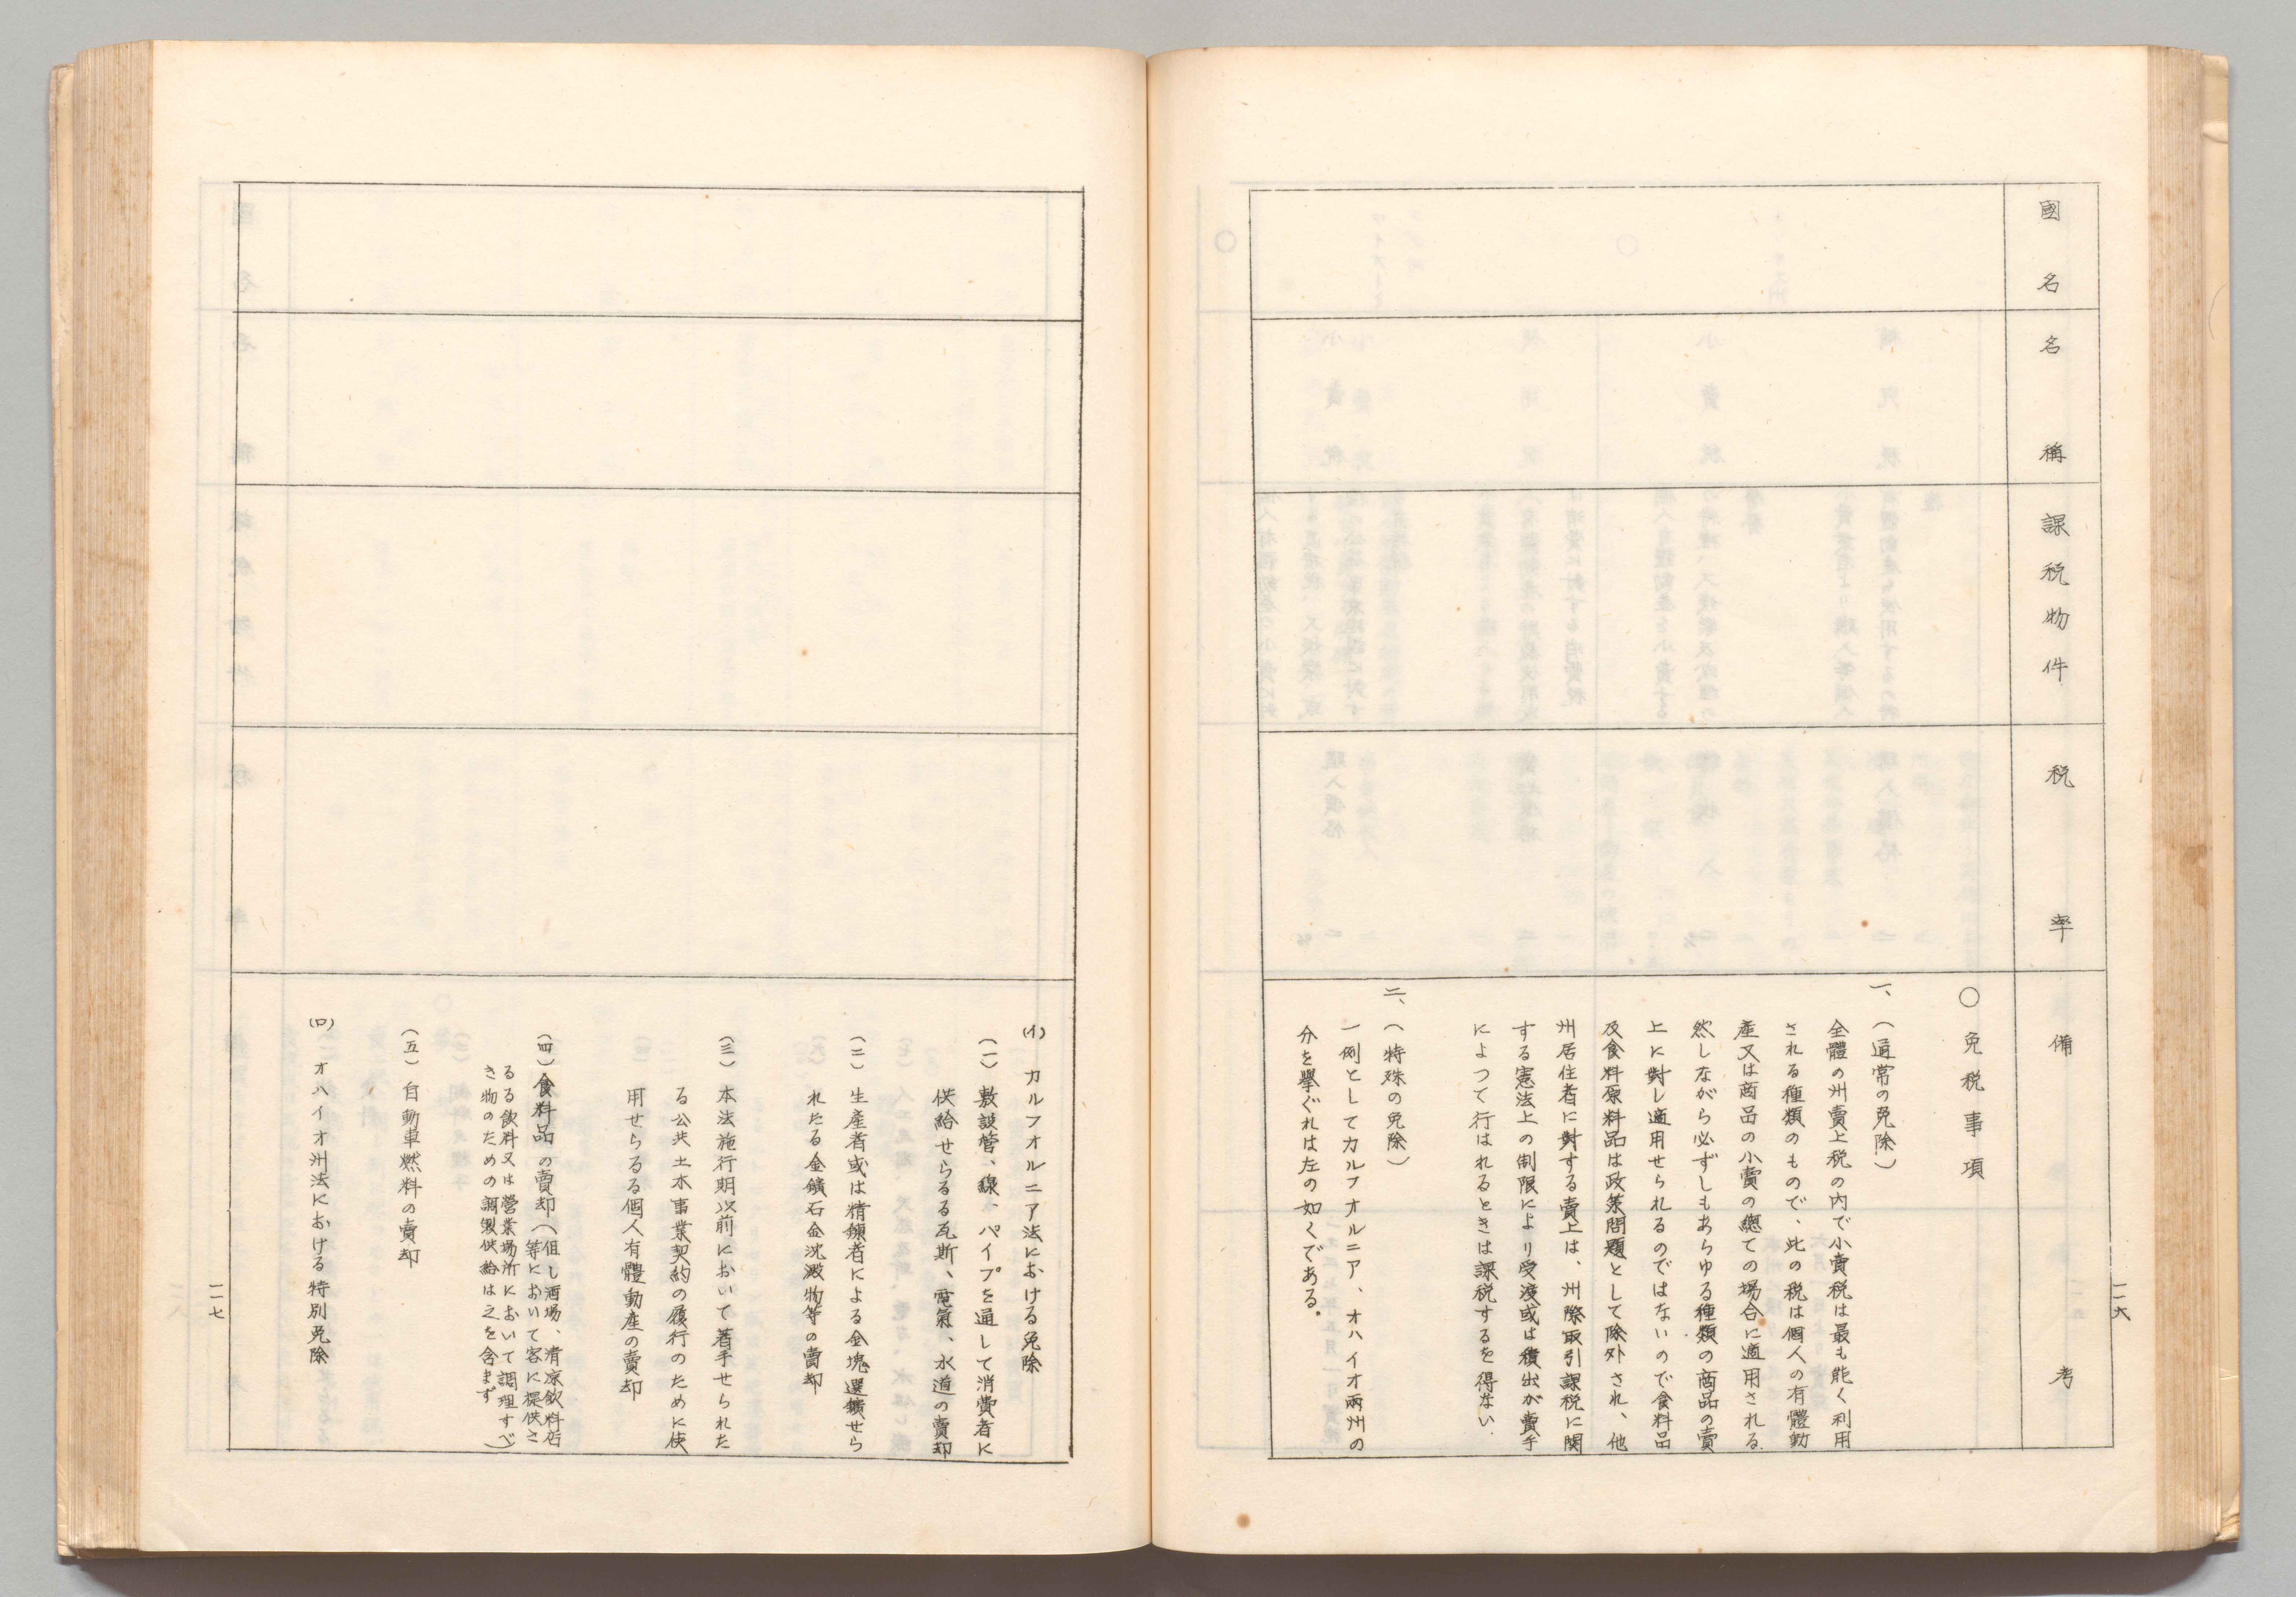 國名
名稱
課税物件
税率
備考
○免税事項
一、(通常の免除)
全體の州賣上税の内で小賣税は最も能く利用
される種類のもので、此の税は個人の有體動
產又は商品の小賣の總ての場合に適用される
然しながら必ずしもあらゆる種類の商品の賣
上に對し適用せられるのではないので食料品
及食料原料品は政策問題として除外され、他
州居住者に對する賣上は、州際取引課税に関
する憲法上の制限により受渡或は積出が賣手
によつて行はれるときは課税するを得ない.
二、(特殊の免除)
一例としてカルフオルニア、オハイオ兩州の
分を擧ぐれは左の如くである。
一一六
(イ)カルフオルニア法における免除
(一)敷設管、線、パイプを通して消費者に
供給せらるる瓦斯、電氣、水道の賣却
(二)生產者或は精鍊者による金塊選鑛せら
れたる金鑛石金沈澱物等の賣却
(三)本法施行期以前において著手せられた
る公共土木事業契約の履行のために使
用せらるる個人有體動產の賣却
(四)食料品の賣却(但し酒場、清凉飲料店
等において客に提供さ
るる飲料又は營業場所において調理すべ
き物のための調製供給は之を含まず)
(五)自動車燃料の賣却
(ロ)オハイオ洲法における特別免除
一一七